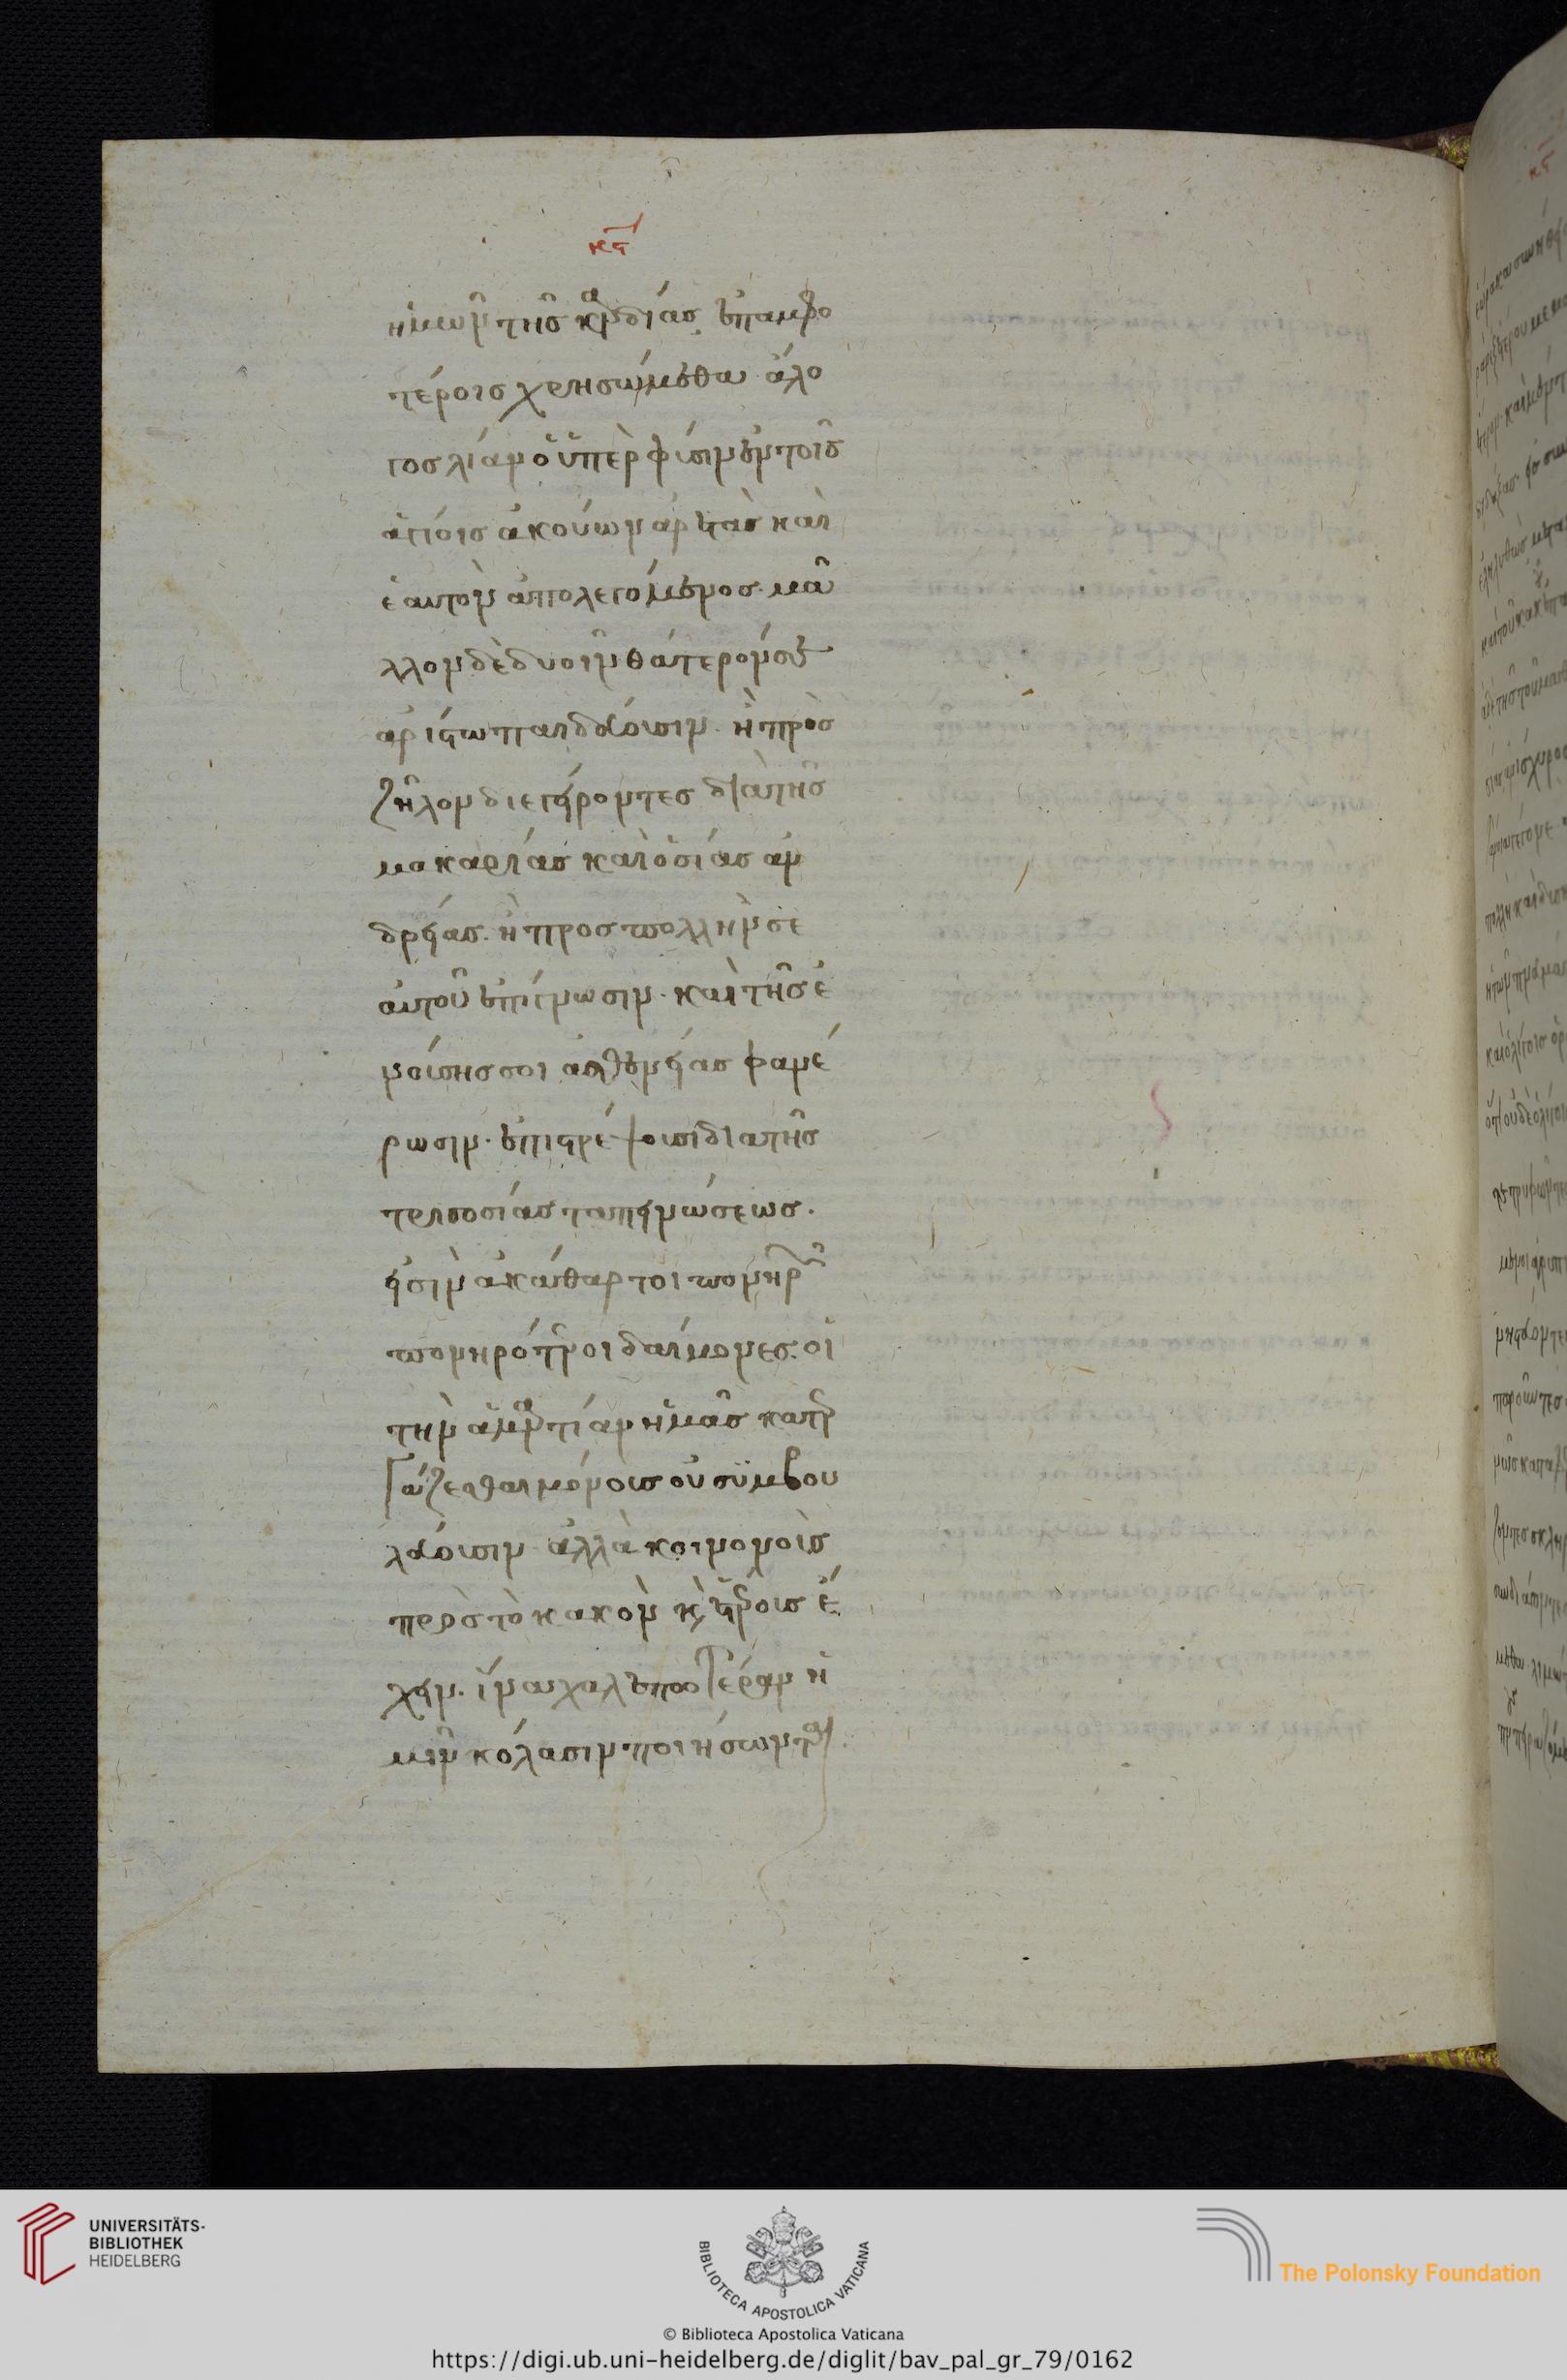 κϛ
ἡμῶν τῆς καρδίας ἐπαμφο
τέροις χρησώμεθα· ἄλο
γος λίαν ὁ ὑπὲρ φύσιν ἐν τοῖς
ἁγίοις ἀκούων ἀρετὰς καὶ
ἑαυτὸν ἀπολεγόμενος· μᾶ
λλον δὲ δυοῖν θάτερόν σε
ἀρίστω παιδεύουσιν· ἢ πρὸς
ζῆλον διεγείροντες διὰ τῆς
μακαρίας καὶ ὁσίας ἀν
δρείας· ἢ πρὸς πολλὴν σε
αυτοῦ ἐπίγνωσιν· καὶ τῆς ἐ
νούσης σοι ἀσθενείας φανέ
ρωσιν· ἐπιστρέφουσι διὰ τῆς
τρισοσίας ταπεινώσεως·
εἰσὶν ἀκάθαρτοι πονηρῶν
πονηρότεροι δαίμονες· οἳ
τὴν ἁμαρτίαν ἡμᾶς κατερ
γάζεσθαι μόνους οὐ συμβου
λεύουσιν ἀλλὰ κοινονοὺς
πρὸς τὸ κακὸν καὶ ἑτέρους ἔ
χειν· ἵνα χαλεπωτέραν ἡ
μῖν κόλασιν ποιήσωνται·
UNIVERSITÄTS-
BIBLIOTHEK
HEIDELBERG
BIBLIOTECA APOSTOLICA VATICANA
The Polonsky Foundation
© Biblioteca Apostolica Vaticana
https://digi.ub.uni-heidelberg.de/diglit/bav_pal_gr_79/0162